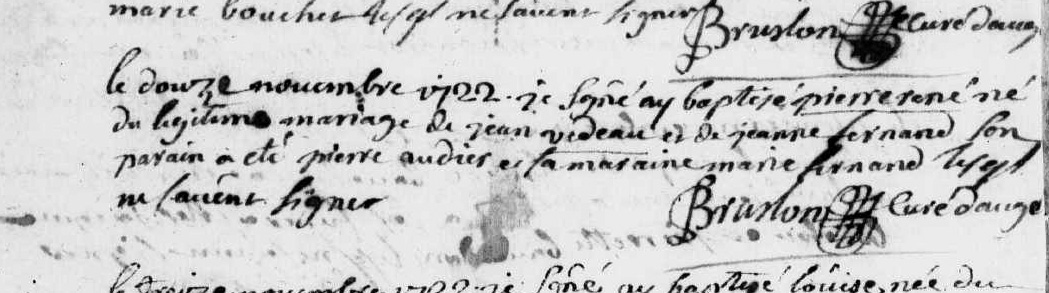 marie bouchet lesqls ne savent signer Bruslon Curé d'auge
le douze novembre 1722 je sgné ay baptisé pierre rené né
du legitime mariage de jean vedeau et de jeanne fernand son
parain a eté pierre audier et sa maraine marie fernand lesqls
ne savent signer Bruslon Curé d'auge
le treize novembre 1722 je sgné ay baptisé louise née du